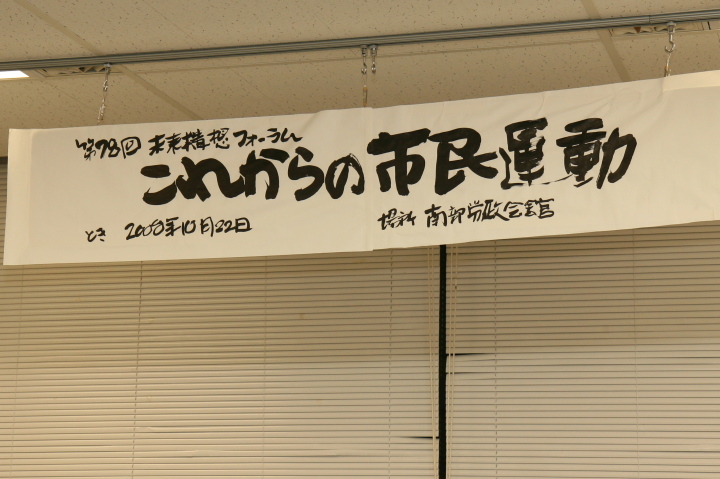 第78回 未来構想フォーラム
これからの市民運動
とき 2008年10月22日
場所 南部労政会館